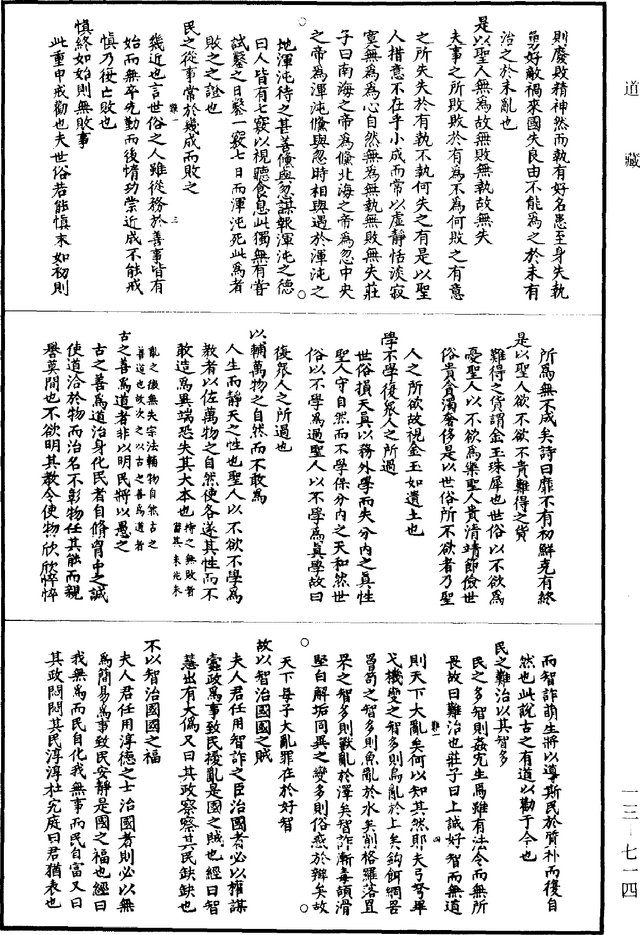 道藏
則廢敗精神然而執有好名患至身失執
勇好敵禍來國失良由不能爲之於未有
治之於未亂也
是以聖人無爲故無敗無執故無失
夫事之所敗敗於有爲不爲何敗之有意
之所失失於有執不執何失之有是以聖
人措意不在乎小成而常以虛靜恬淡寂
寞無爲爲心自然無爲無執無敗無失莊
子曰南海之帝爲儵北海之帝爲忽中央
之帝爲渾沌儵與忽時相與遇於渾沌之
地渾沌待之甚善儵與忽謀報渾沌之德
曰人皆有七竅以視聽食息此獨無有嘗
試鑿之日鑿一竅七日而渾沌死此爲者
敗之之證也
民之從事常於幾成而敗之
難一
三
幾近也言世俗之人雖從務於善事皆有
始而無卒先勤而後惰功崇近成不能戒
慎乃復亡敗也
慎終如始則無敗事
此重申戒勸也夫世俗若能慎末如初則
所爲無不成矣詩曰靡不有初鮮克有終
是以聖人欲不欲不貴難得之貨
難得之貨謂金玉珠犀也世俗以不欲爲
憂聖人以不欲爲樂聖人貴清靖節儉世
俗貴貪濁奢侈是以世俗所不欲者乃聖
人之所欲故視金玉如遺土也
學不學復衆人之所過
世俗損天真以務外學而失分內之真性
聖人守自然而不學保分內之天和然世
俗以不學爲過聖人以不學爲真學故曰
復衆人之所過也
以輔萬物之自然而不敢爲
人生而靜天之性也聖人以不欲不學爲
教者以佐萬物之自然使各遂其性而不
敢造爲異端恐失其大本也
持之無敗者
當其未兆未
亂之微無失宗法輔物自然古之
善道也故次之以古之善爲道者
古之善爲道者非以明民將以愚之
古之善爲道治身化民者自脩胷中之誠
使道洽於物而治名不彰物任其能而親
譽莫間也不欲明其教令使物欣欣悴悴
而智詐萌生將以導斯民於質朴而復自
然也此說古之有道以勸于今也
民之難治以其智多
民之多智則姦宄生焉雖有法令而無所
畏故曰難治也莊子曰上誠好智而無道
難一
四
則天下大亂矣何以知其然耶夫弓弩畢
弋機變之智多則鳥亂於上矣鈎餌網罟
罾笱之智多則魚亂於水矣削格羅落罝
罘之智多則獸亂於澤矣智詐漸毒頡滑
堅白解垢同異之變多則俗惑於辯矣故
天下每每大亂罪在於好智
故以智治國國之賊
夫人君任用智詐之臣治國者必以權謀
蠹政爲事致民擾亂是國之賊也經曰智
慧出有大僞又曰其政察察其民缺缺也
不以智治國國之福
夫人君任用淳德之士治國者則必以無
爲簡易爲事致民安靜是國之福也經曰
我無爲而民自化我無事而民自富又曰
其政悶悶其民淳淳杜宄庭曰君猶表也
一三—七一四